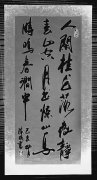 人閒桂花落夜靜
春山空月出驚山鳥
時鳴春澗中